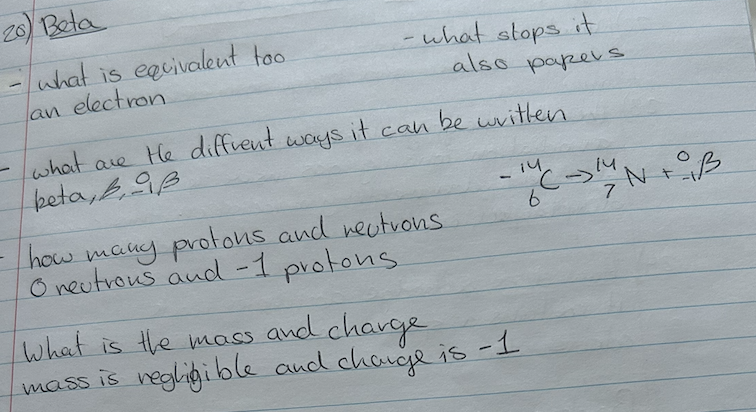 20) Beta
- what is equivalent too
an electron
- what stops it
also papers
- what are the diffrent ways it can be written
beta, β, ⁰₋₁β
- ¹⁴₆C → ¹⁴₇N + ⁰₋₁β
- how many protons and neutrons
0 neutrons and -1 protons
What is the mass and charge
mass is negligible and charge is -1